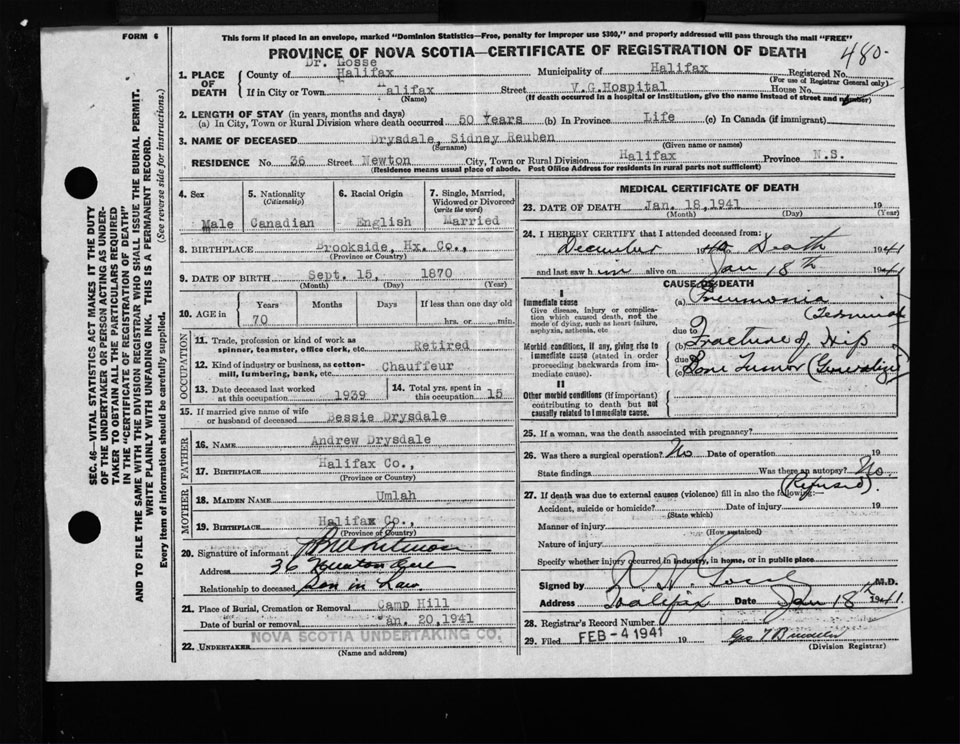 FORM 6
This form if placed in an envelope, marked "Dominion Statistics—Free, penalty for improper use $300," and properly addressed will pass through the mail "FREE"
PROVINCE OF NOVA SCOTIA—CERTIFICATE OF REGISTRATION OF DEATH
480
Dr. Gosse
1. PLACE OF DEATH
County of Halifax Municipality of Halifax Registered No.
(For use of Registrar General only)
If in City or Town Halifax Street V.G.Hospital House No.
(Name) (If death occurred in a hospital or institution, give the name instead of street and number)
2. LENGTH OF STAY (in years, months and days)
(a) In City, Town or Rural Division where death occurred 50 Years (b) In Province Life (c) In Canada (if immigrant)
3. NAME OF DECEASED Drysdale, Sidney Reuben
(Surname) (Given name or names)
RESIDENCE No. 36 Street Newton City, Town or Rural Division Halifax Province N.S.
(Residence means usual place of abode. Post Office Address for residents in rural parts not sufficient)
4. Sex
Male
5. Nationality (Citizenship)
Canadian
6. Racial Origin
English
7. Single, Married, Widowed or Divorced (write the word)
Married
8. BIRTHPLACE Brookside, Hx. Co.,
(Province or Country)
9. DATE OF BIRTH Sept. 15, 1870
(Month) (Day) (Year)
10. AGE in Years Months Days If less than one day old
70 hrs. or min.
OCCUPATION
11. Trade, profession or kind of work as spinner, teamster, office clerk, etc. Retired
12. Kind of industry or business, as cotton-mill, lumbering, bank, etc. Chauffeur
13. Date deceased last worked at this occupation 1939
14. Total yrs. spent in this occupation 15
15. If married give name of wife or husband of deceased Bessie Drysdale
FATHER
16. NAME Andrew Drysdale
17. BIRTHPLACE Halifax Co.,
(Province or Country)
MOTHER
18. MAIDEN NAME Umlah
19. BIRTHPLACE Halifax Co.,
(Province or Country)
20. Signature of informant
Address 36 Newton Ave
Relationship to deceased Son in Law
21. Place of Burial, Cremation or Removal Camp Hill
Date of burial or removal Jan. 20,1941
NOVA SCOTIA UNDERTAKING CO.
22. UNDERTAKER
(Name and address)
MEDICAL CERTIFICATE OF DEATH
23. DATE OF DEATH Jan. 18,1941 19
(Month) (Day) (Year)
24. I HEREBY CERTIFY that I attended deceased from:
December 1940 Death 1941
and last saw him alive on Jan 18th 1941
CAUSE OF DEATH
I
Immediate cause
Give disease, injury or complication which caused death, not the mode of dying, such as heart failure, asphyxia, asthenia, etc
(a) Pneumonia (Terminal)
due to
Morbid conditions, if any, giving rise to immediate cause (stated in order proceeding backwards from immediate cause).
(b) Fracture of Hip
due to
(c) Bone Tumor (Generalized)
II
Other morbid conditions (if important) contributing to death but not causally related to immediate cause.
25. If a woman, was the death associated with pregnancy?
26. Was there a surgical operation? No Date of operation 19
State findings Was there an autopsy? No
(Refused).
27. If death was due to external causes (violence) fill in also the following:—
Accident, suicide or homicide? Date of injury 19
(State which)
Manner of injury
(How sustained)
Nature of injury
Specify whether injury occurred in industry, in home, or in public place
Signed by M.D.
Address Halifax Date Jan 18th 1941.
28. Registrar's Record Number
29. Filed FEB -4 1941 19
(Division Registrar)
SEC. 46—VITAL STATISTICS ACT MAKES IT THE DUTY
OF THE UNDERTAKER OR PERSON ACTING AS UNDER-
TAKER TO OBTAIN ALL THE PARTICULARS REQUIRED
IN THE "CERTIFICATE OF REGISTRATION OF DEATH"
AND TO FILE THE SAME WITH THE DIVISION REGISTRAR WHO SHALL ISSUE THE BURIAL PERMIT.
WRITE PLAINLY WITH UNFADING INK. THIS IS A PERMANENT RECORD.
Every item of information should be carefully supplied. (See reverse side for instructions.)